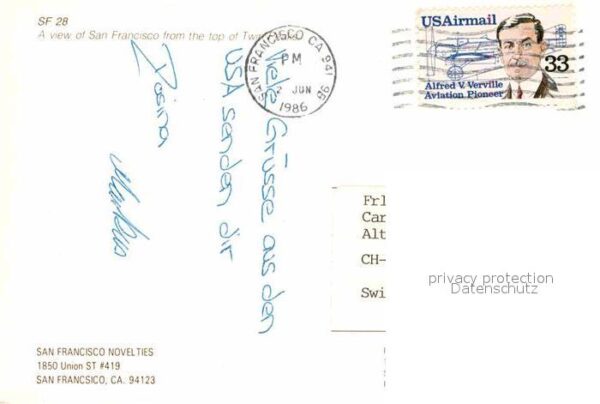 SF 28
A view of San Francisco from the top of Twin
SAN FRANCISCO CA 941
PM
2 JUN
1986
USAirmail
33
Alfred V. Verville
Aviation Pioneer
Viele Grüsse aus den
USA senden dir
Rosina
Markus
Frl
Car
Alt
CH-
Swi
privacy protection
Datenschutz
SAN FRANCISCO NOVELTIES
1850 Union ST #419
SAN FRANCSICO, CA. 94123